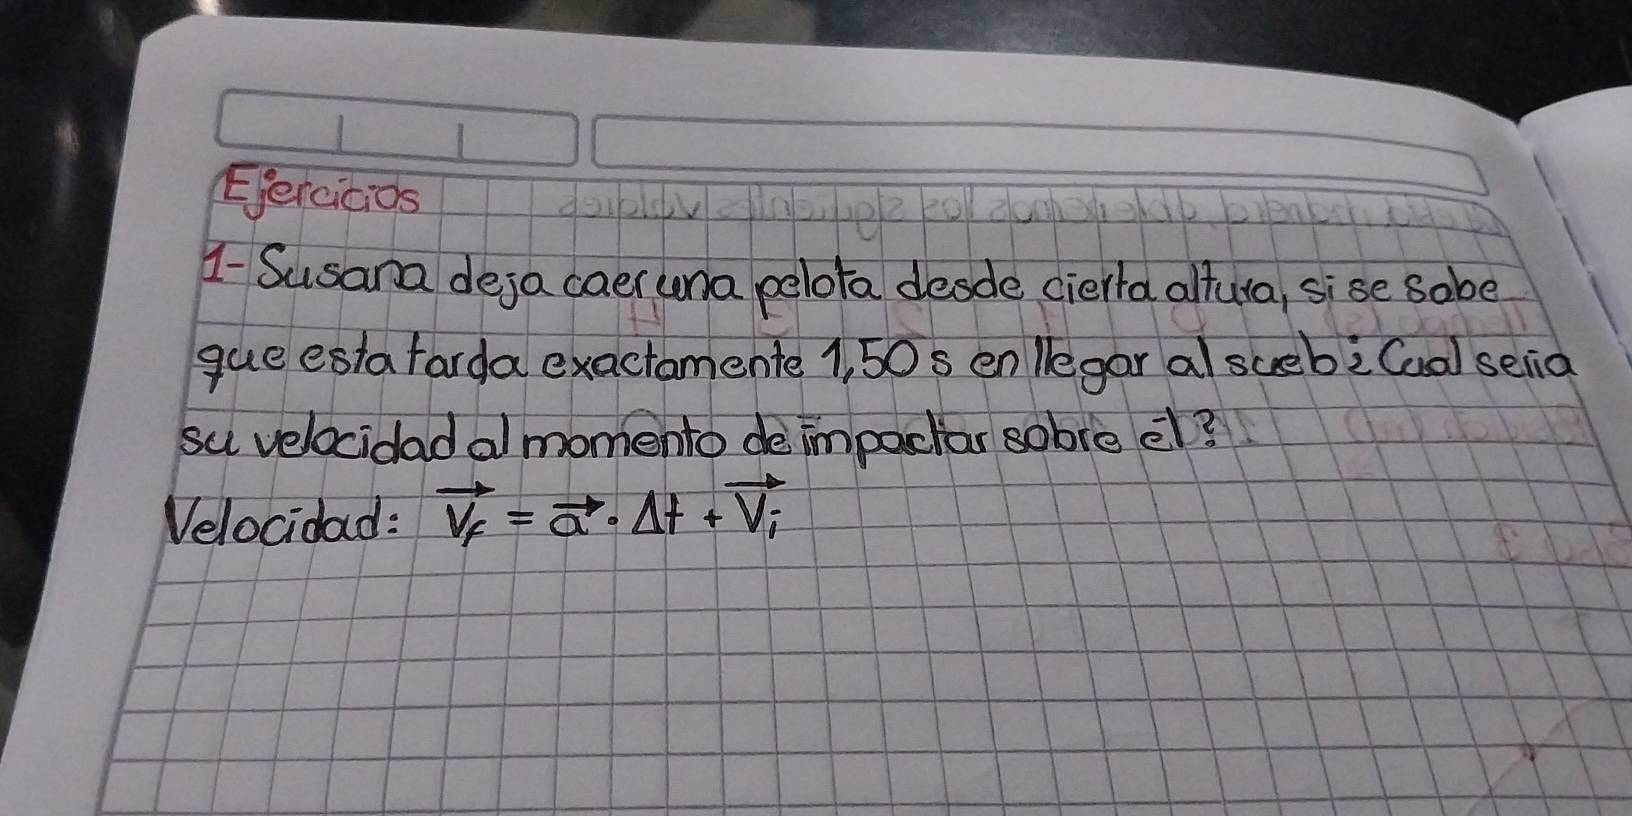 Ejercicios
1- Susana deja caer una pelota desde cierta altura, si se sabe
que esta tarda exactamente 1,50 s en llegar al sueb ¿Cual seria
su velocidad al momento de impactar sobre él?
Velocidad: V⃗f = a⃗ · Δt + V⃗i